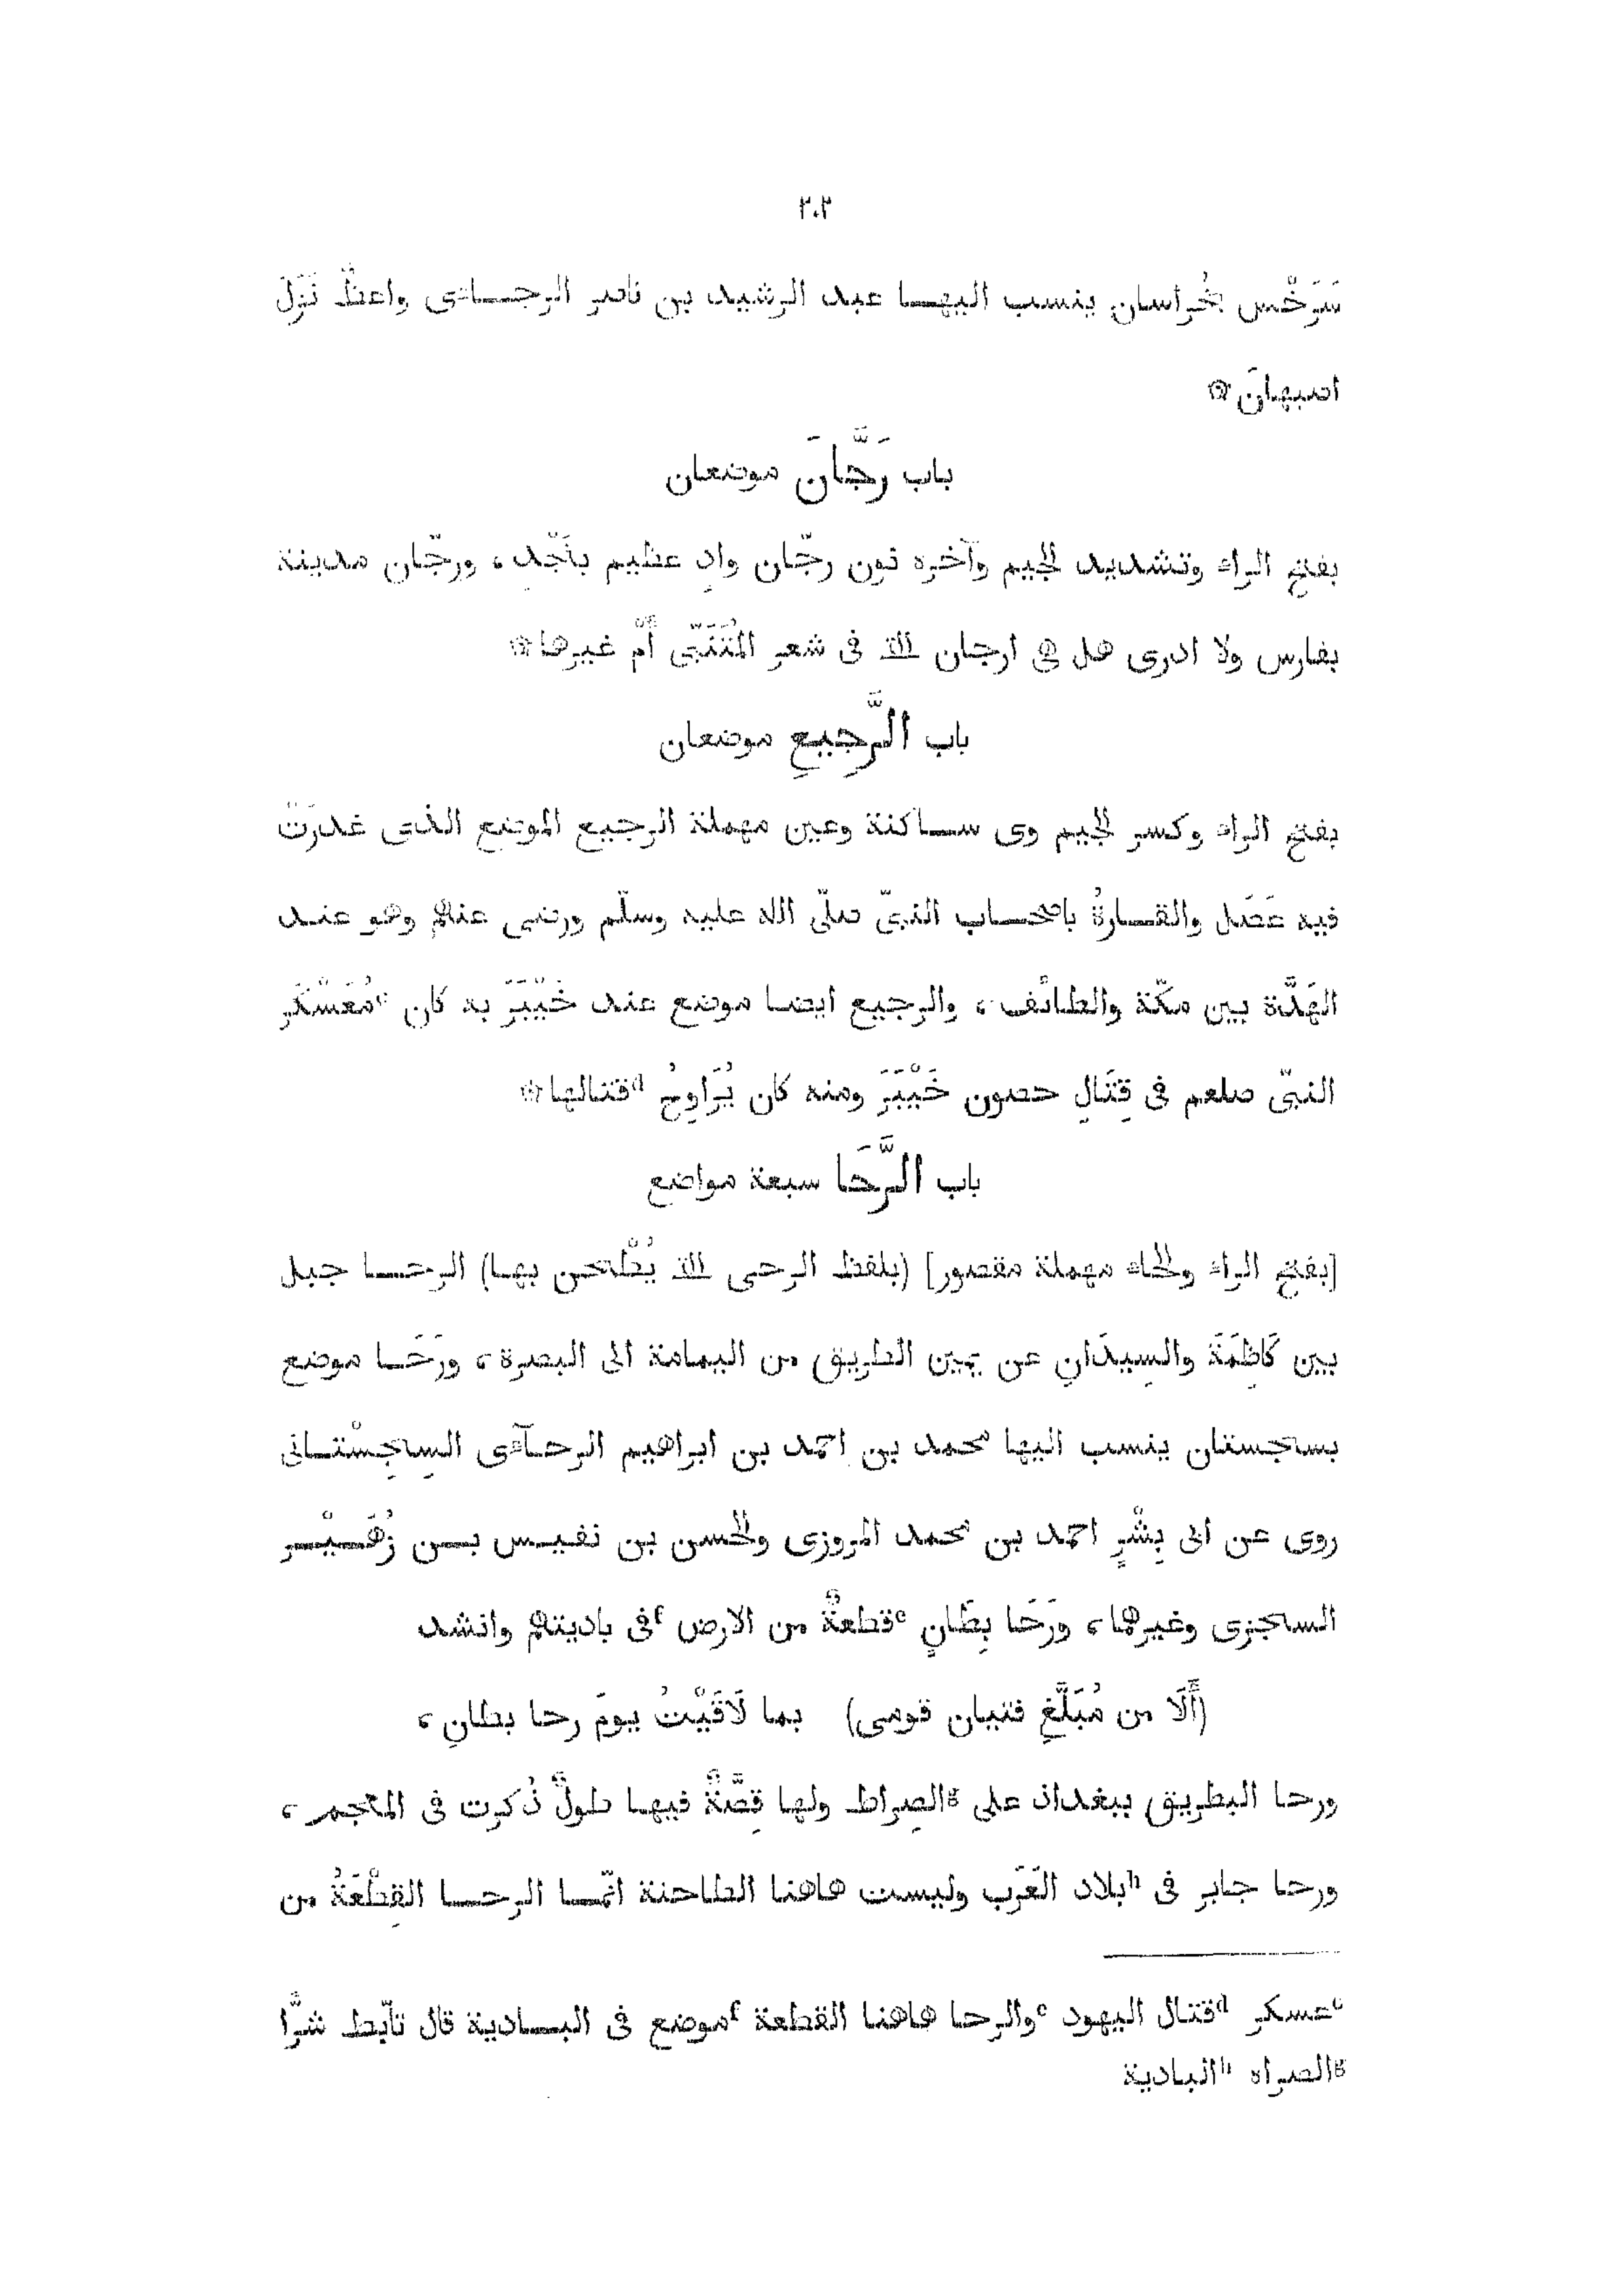 ٢٠٢
سَرَخْس بخُراسان ينسب اليهـا عبد الرشيد بن ناصر الرجـاءى واعظٌ نَزَلَ
اصبهانَ ۞
باب رَجَّانَ موضعان
بفتح الراء وتشديد الجيم وآخره نون رجّان وادٍ عظيم بنَجْدٍ، ورجّان مدينة
بفارس ولا ادرى هل هى ارجان التى فى شعر المُتَنَبّى أَمْ غيرها ۞
باب الرَّجِيعِ موضعان
بفتح الراء وكسر الجيم وى ساكنة وعين مهملة الرجيع الموضع الذى غدرَتْ
فيه عَضَل والقارةُ باصحاب النبىّ صلّى الله عليه وسلّم ورضى عنهم وهو عند
الهَدَّة بين مكّة والطائف، والرجيع ايضا موضع عند خَيْبَرَ به كان ᶜمُعَسْكَر
النبىّ صلعم فى قِتَالِ حصون خَيْبَرَ ومنه كان يُرَاوِحُ ᵈقتالها ۞
باب الرَّحَا سبعة مواضع
[بفتح الراء والحاء مهملة مقصور] (بلفظ الرحى التى يُطْحن بها) الرحا جبل
بين كَاظِمَةَ والسِيدَانِ عن يمين الطريق من اليمامة الى البصرة، ورَحَا موضع
بسجستان ينسب اليها محمد بن احمد بن ابراهيم الرحآءى السِجِسْتانى
روى عن ابى بِشْرٍ احمد بن محمد المروزى والحسن بن نفيس بن زُهَيْر
السجزى وغيرهما، ورَحَا بِطَانٍ ᵉقطعةٌ من الارض ᶠفى باديتهم وانشد
(أَلَا من مُبَلِّغِ فتيان قومى) بما لَاقَيْتُ يومَ رحا بطانِ،
ورحا البطريق ببغداد على ᵍالصِراط ولها قِصَّةٌ فيها طولٌ ذُكرت فى المعجم،
ورحا جابر فى ʰبلاد العَرَب وليست هاهنا الطاحنة انّما الرحا القِطْعَةُ من
ᶜعسكر ᵈقتال اليهود ᵉوالرحا هاهنا القطعة ᶠموضع فى البادية قال تأبّط شرًّا
ᵍالصراه ʰالبادية